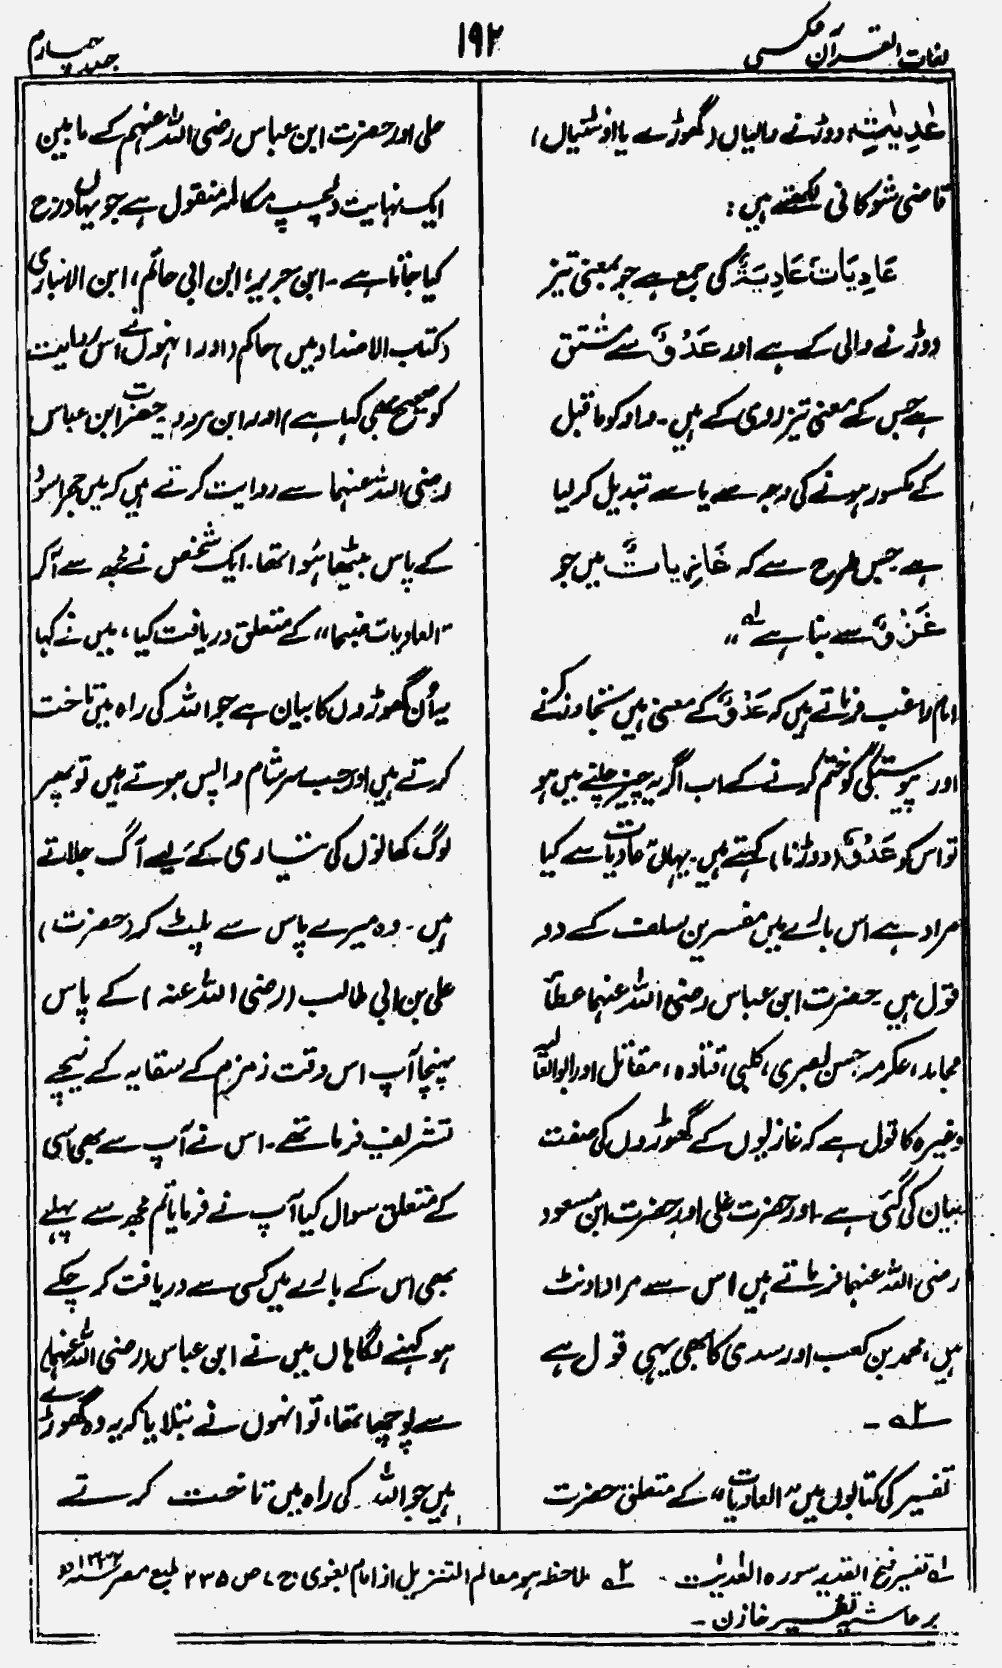 لغات القرآن عکسی
۱۹۲
جلد چہارم
عٰدِیٰتِ، دوڑنے والیاں (گھوڑے یا اونٹنیاں)
قاضی شوکانی لکھتے ہیں :
عَادِیَاتٌ عَادِیَۃٌ کی جمع ہے جو بمعنی تیز
دوڑنے والی کے ہے اور عَدْوٌ سے مشتق
ہے جس کے معنی تیز روی کے ہیں۔ واو کو ماقبل
کے مکسور ہونے کی وجہ سے یا سے تبدیل کر لیا
ہے جس طرح سے کہ غَازِیاتٌ میں جو
غَزْوٌ سے بنا ہے لہ ،،
امام راغب فرماتے ہیں کہ عَدْوٌ کے معنی ہیں تجاوز کرنے
اور پیوستگی کو ختم کرنے کے اب اگر یہ چیز چلنے میں ہو
تو اس کو عَدْوٌ (دوڑنا) کہتے ہیں۔ یہاں عادیات سے کیا
مراد ہے اس بارے میں مفسرین سلف کے دو
قول ہیں۔ حضرت ابن عباس رضی اللہ عنہما عطاؒ
مجاہد، عکرمہ حسن بصری، کلبی، قتادہ، مقاتل اور ابو العالیہ
وغیرہ کا قول ہے کہ غازیوں کے گھوڑوں کی صفت
بیان کی گئی ہے۔ اور حضرت علی اور حضرت ابن مسعود
رضی اللہ عنہما فرماتے ہیں اس سے مراد اونٹ
ہیں، محمد بن کعب اور سدی کا بھی یہی قول ہے
۲ہ ۔
تفسیر کی کتابوں میں "العادیات" کے متعلق حضرت
علی اور حضرت ابن عباس رضی اللہ عنہم کے مابین
ایک نہایت دلچسپ مکالمہ منقول ہے جو یہاں درج
کیا جاتا ہے۔ ابن جریر، ابن ابی حاتم، ابن الانباری
(کتاب الاضداد میں) حاکم (اور انہوں نے اس روایت
کو صحیح بھی کہا ہے) اور ابن مردویہ حضرت ابن عباس
رضی اللہ عنہما سے روایت کرتے ہیں کہ میں حجر اسود
کے پاس بیٹھا ہُوا تھا۔ ایک شخص نے مجھ سے آکر
"العادیات ضبحا،، کے متعلق دریافت کیا، میں نے کہا
یہ اُن گھوڑوں کا بیان ہے جو اللہ کی راہ میں تاخت
کرتے ہیں اور جب سرِ شام واپس ہوتے ہیں تو پھر
لوگ کھانوں کی تیاری کے لیے آگ جلاتے
ہیں۔ وہ میرے پاس سے پلٹ کر (حضرت)
علی بن ابی طالب (رضی اللہ عنہ) کے پاس
پہنچا آپ اس وقت زمزم کے سقایہ کے نیچے
تشریف فرما تھے۔ اس نے آپ سے بھی اسی
کے متعلق سوال کیا آپ نے فرمایا تم مجھ سے پہلے
بھی اس کے بارے میں کسی سے دریافت کر چکے
ہو کہنے لگا ہاں میں نے ابن عباس (رضی اللہ عنہما)
سے پوچھا تھا، تو انہوں نے بتلایا کہ یہ وہ گھوڑے
ہیں جو اللہ کی راہ میں تاخت کرتے
لہ تفسیر فتح القدیر سورہ العٰدیٰت ۔ ۲ہ ملاحظہ ہو معالم التنزیل از امام بغوی ج ۷ ص ۲۳۵ طبع مصر
بر حاشیہ تفسیر خازن ۔